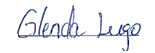 Glenda Lugo